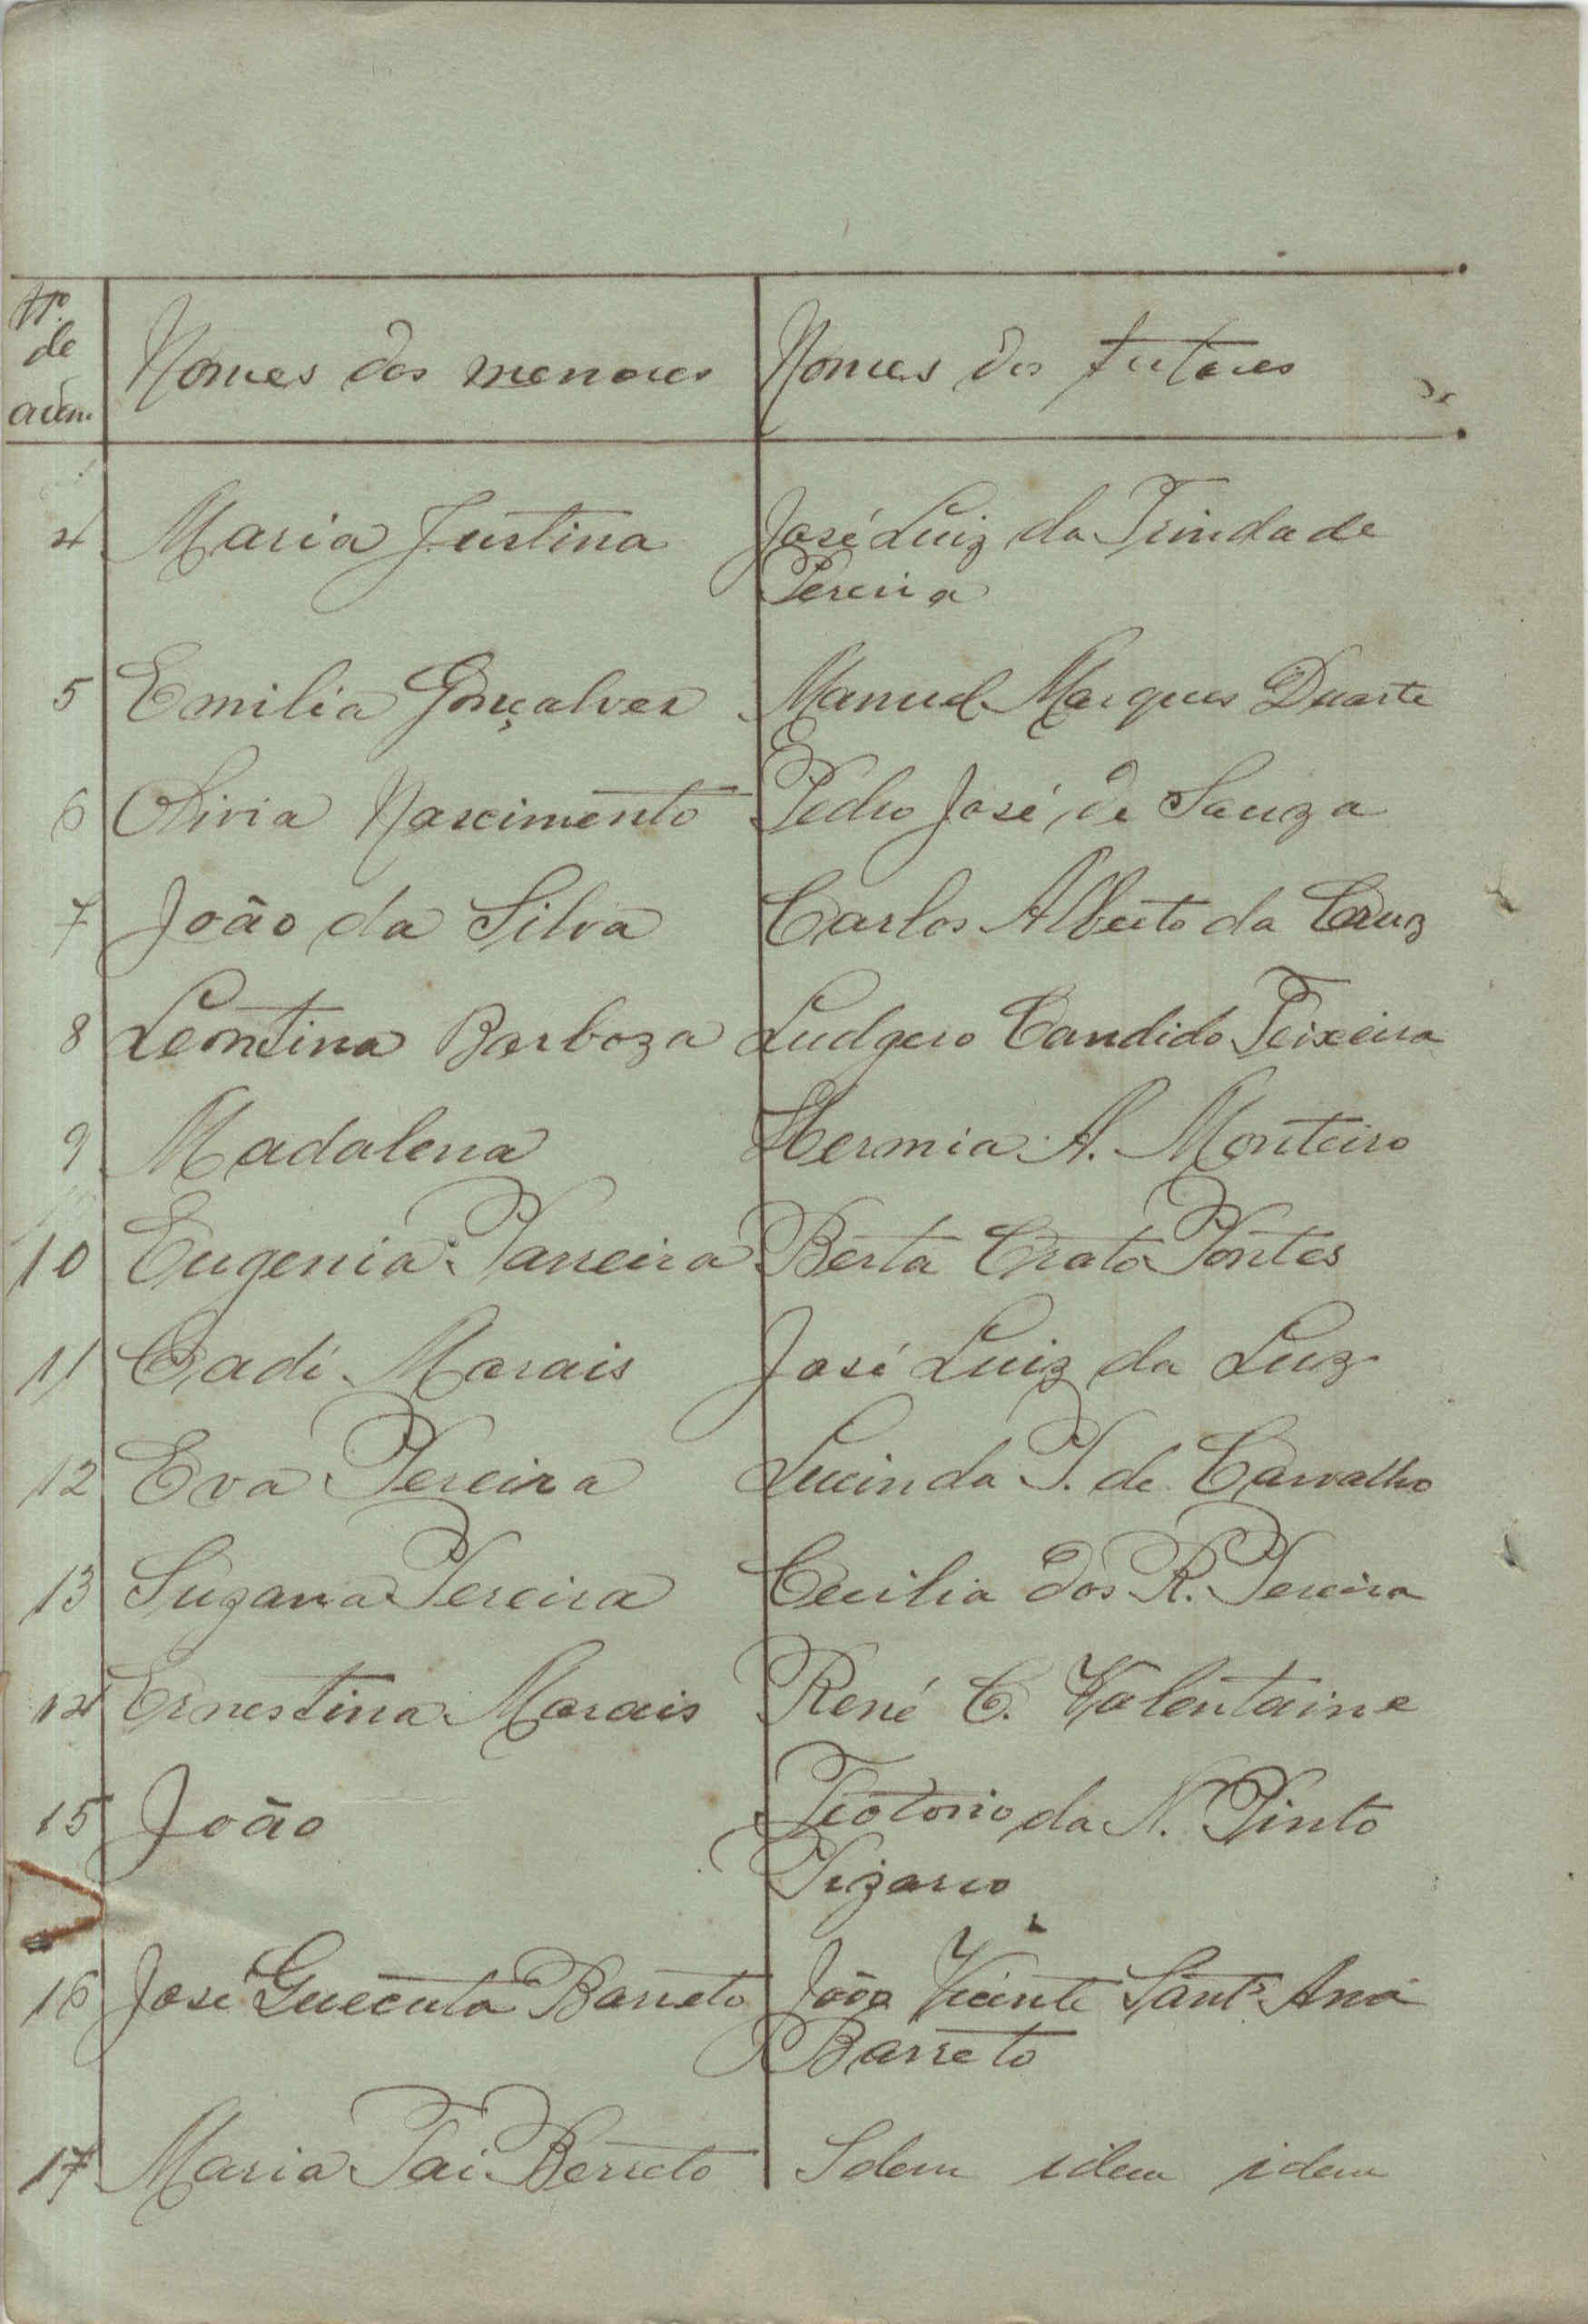 Nº de ordem Nomes dos menores Nomes dos tutores
4 Maria Justina José Luiz da Trindade
Pereira
5 Emilia Gonçalves Manuel Marques Duarte
6 Olivia Nascimento Pedro José de Souza
7 João da Silva Carlos Alberto da Cruz
8 Leontina Barboza Ludgero Candido Teixeira
9 Madalena Hermia A. Monteiro
10 Eugenia Parreira Berta Crato Pontes
11 Cadi Morais José Luiz da Luz
12 Eva Pereira Lucinda P. de Carvalho
13 Suzana Pereira Cecilia dos R. Pereira
14 Ernestina Morais René C. Valentaine
15 João Teotonio da N. Pinto
Pizarro
16 José Barreto João Vicente Sant'Ana
Barreto
17 Maria Barreto Idem idem idem